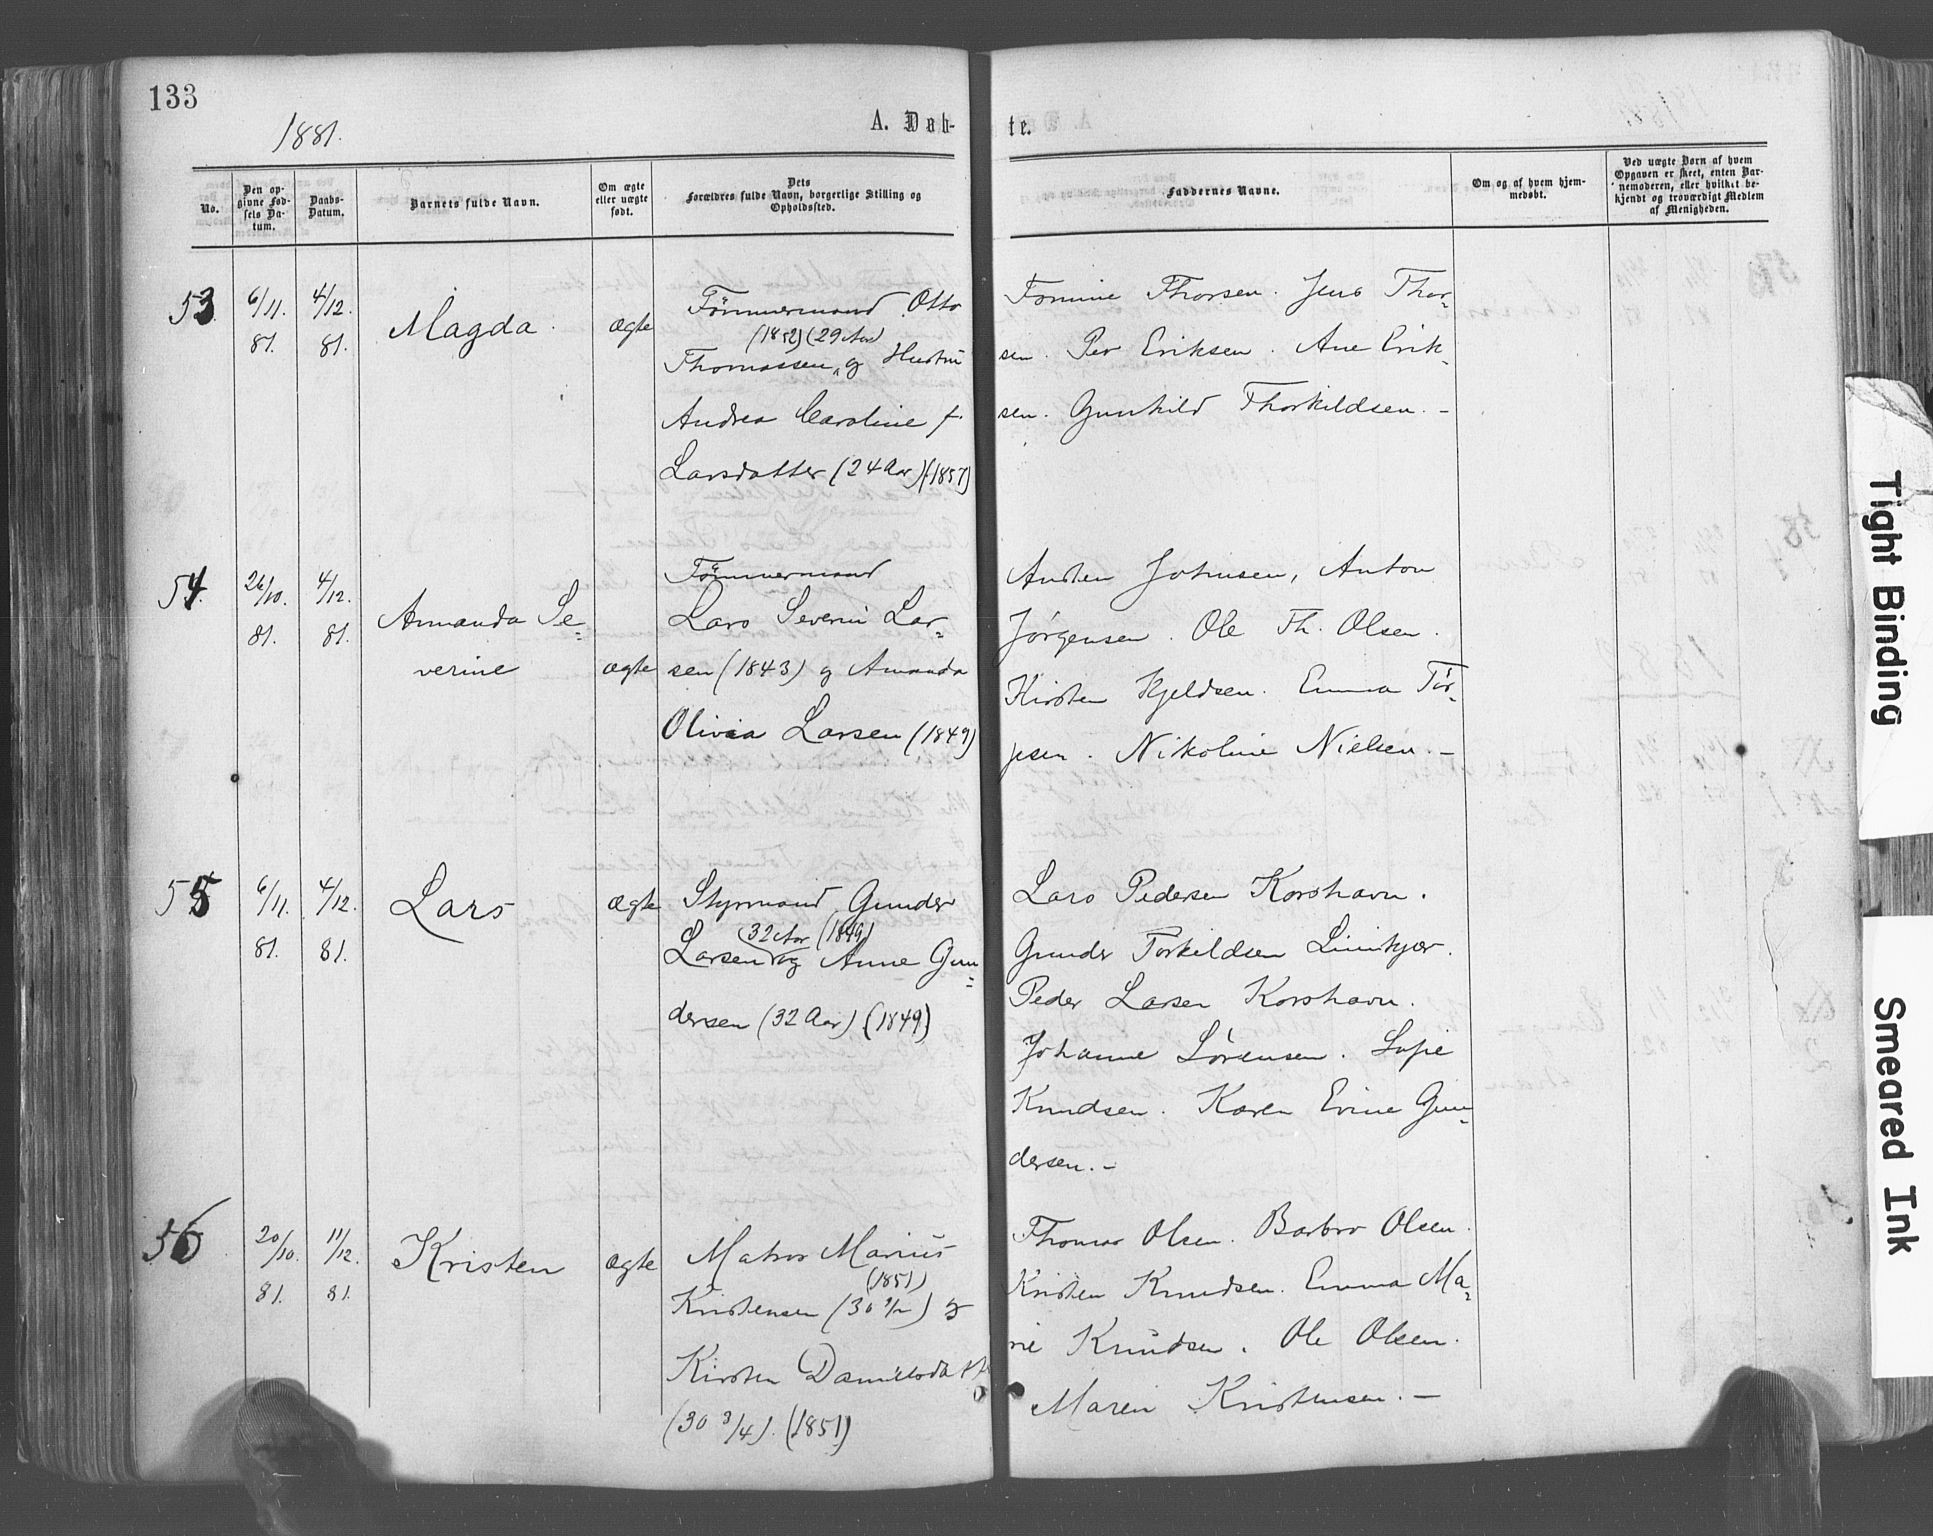 133
1881.
A. Døb-
te.
No.
Den op-
givne Fød-
sels Da-
tum.
Daabs-
Datum.
Barnets fulde Navn.
Om ægte
eller uægte
født.
Dets
Forældres fulde Navn, borgerlige Stilling og
Opholdssted.
Faddernes Navne.
Om og af hvem hjem-
medøbt.
Ved uægte Børn af hvem
Opgaven er skeet, enten Bar-
nemoderen, eller hvilket be-
kjendt og troværdigt Medlem
af Menigheden.
53
6/11.
81.
4/12.
81.
Magda.
Ægte
Tømmermand Otto
(1852) (29 Aar)
Thomassen og Hustru
Andrea Caroline f.
Larsdatter (24 Aar) (1857)
Tomine Thorsen. Jens Thor-
sen. Per Eriksen. Ane Erik-
sen. Gunhild Thorkildsen. -
54.
26/10.
81.
4/12.
81.
Amanda Se-
verine
Ægte
Tømmermand
Lars Severin Lar-
sen (1843) og Amanda
Olivia Larsen (1849)
Anders Johnsen, Anton
Jørgensen. Ole Th. Olsen.
Kirsten Kjeldsen. Emma Tør-
jesen. Nikoline Nielsen. -
55
6/11.
81.
4/12.
81.
Lars
Ægte
Styrmand Gunder
32 Aar (1849)
Larsen og Anne Gun-
dersen (32 Aar) (1849)
Lars Pedersen Korshavn.
Gunder Torkildsen
Peder Larsen Korshavn.
Johanne Sørensen. Sofie
Knudsen. Karen Evine Gun-
dersen. -
56
20/10.
81.
11/12.
81.
Kristen
Ægte
Matros Marius
(1851)
Kristensen (30 1/2) og
Kirsten Danielsdtt
(30 3/4). (1851)
Thomas Olsen. Barbro Olsen.
Kristen Knudsen. Emma Ma-
rie Knudsen. Ole Olsen.
Maren Kristensen. -
Tight Binding
Smeared Ink